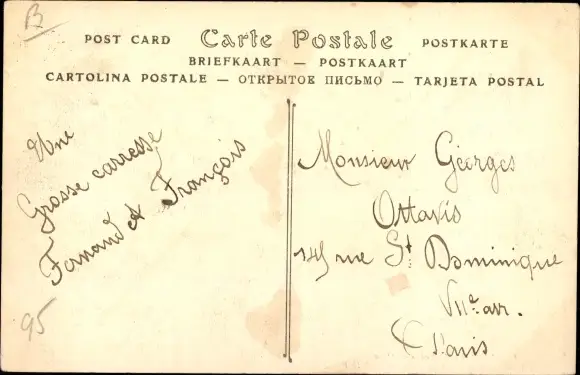 B
POST CARD Carte Postale POSTKARTE
BRIEFKAART — POSTKAART
CARTOLINA POSTALE — ОТКРЫТОЕ ПИСЬМО — TARJETA POSTAL
Une
Grosse carresse
Fernand et François
95
Monsieur Georges
Ottavis
145 rue St Dominique
VIIe arr.
Paris